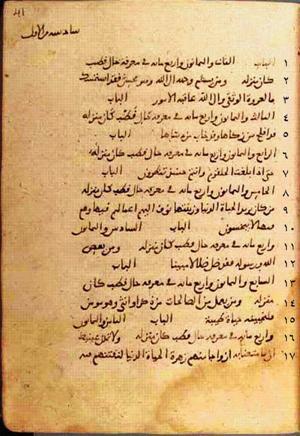 ٤١
١ الباب الثانى والثمانون واربع مائه فى معرفة حال قطب
٢ كان منزله ومن يسلم وجهه الى الله وهو محسن فقد استمسك
٣ بالعروة الوثقى والى الله عاقبة الامور الباب
٤ الثالث والثمانون واربع مائه فى معرفة حال قطب كان منزله
٥ قد افلح من زكاها وقد خاب من دساها الباب
٦ الرابع والثمانون واربع مائه فى معرفة حال قطب كان منزله
٧ حتى اذا بلغت الحلقوم وانتم حينئذ تنظرون الباب
٨ الخامس والثمانون واربع مائه فى معرفة حال قطب كان منزله
٩ من كان يريد الحياة الدنيا وزينتها نوف اليهم اعمالهم فيها وهم
١٠ فيها لا يبخسون الباب السادس والثمانون
١١ واربع مائه فى معرفة حال قطب كان منزله ومن يعص
١٢ الله ورسوله فقد ضل ضلالا مبينا الباب
١٣ السابع والثمانون واربع مائه فى معرفة حال قطب كان
١٤ منزله ومن يعمل من الصالحات من ذكر او انثى وهو مومن
١٥ فلنحيينه حياة طيبة الباب الثامن والثمانون
١٦ واربع مائه فى معرفة حال قطب كان منزله ولا تمدن عينيك
١٧ الى ما متعنا به ازواجا منهم زهرة الحياة الدنيا لنفتنهم فيه